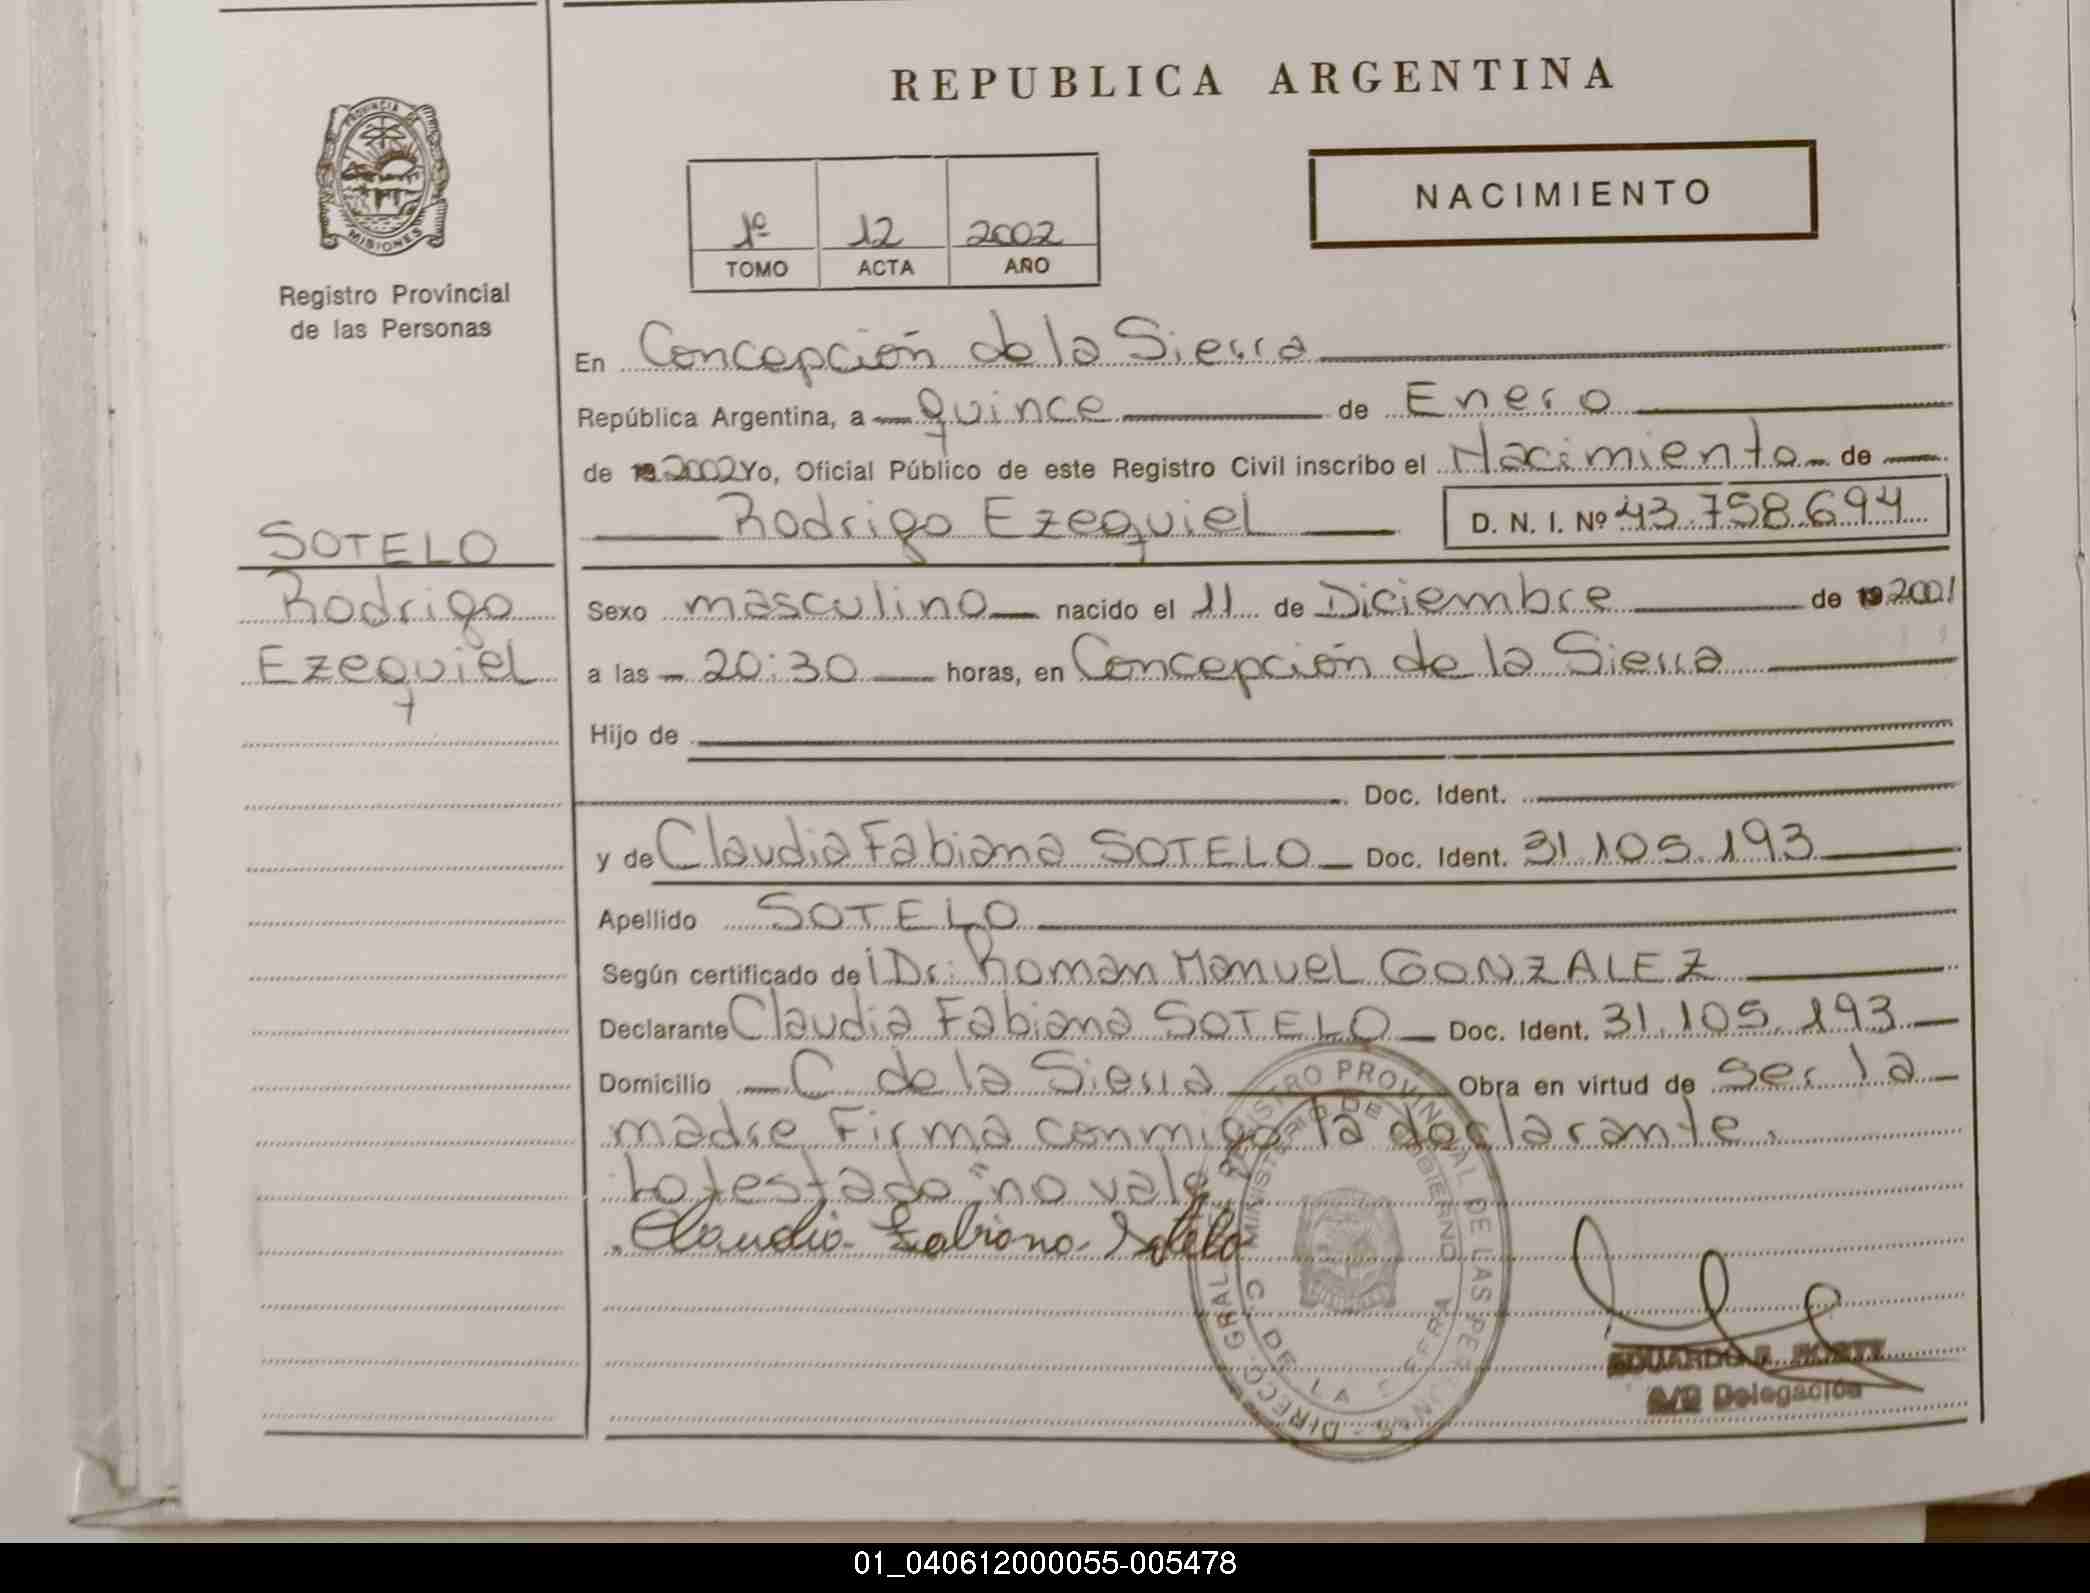 REPUBLICA ARGENTINA
PROVINCIA DE MISIONES
Registro Provincial
de las Personas
NACIMIENTO
1º 12 2002
TOMO ACTA AÑO
En Concepción de la Sierra
República Argentina, a quince de Enero
de 19 2002 Yo, Oficial Público de este Registro Civil inscribo el Nacimiento de
Rodrigo Ezequiel D. N. I. Nº 43.758.694
SOTELO
Rodrigo
Ezequiel
Sexo masculino nacido el 11 de Diciembre de 19 2001
a las 20:30 horas, en Concepción de la Sierra
Hijo de
Doc. Ident.
y de Claudia Fabiana SOTELO Doc. Ident. 31.105.193
Apellido SOTELO
Según certificado del Dr. Roman Manuel GONZALEZ
Declarante Claudia Fabiana SOTELO Doc. Ident. 31.105.193
Domicilio C. de la Sierra Obra en virtud de ser la
madre Firma conmigo la declarante.
Lo testado "no vale
Claudia Fabiana Sotelo
DIRECC. GRAL. REGISTRO PROVINCIAL DE LAS PERSONAS
MINISTERIO DE GOBIERNO
C. DE LA SIERRA
EDUARDO
A/C Delegación
01_040612000055-005478